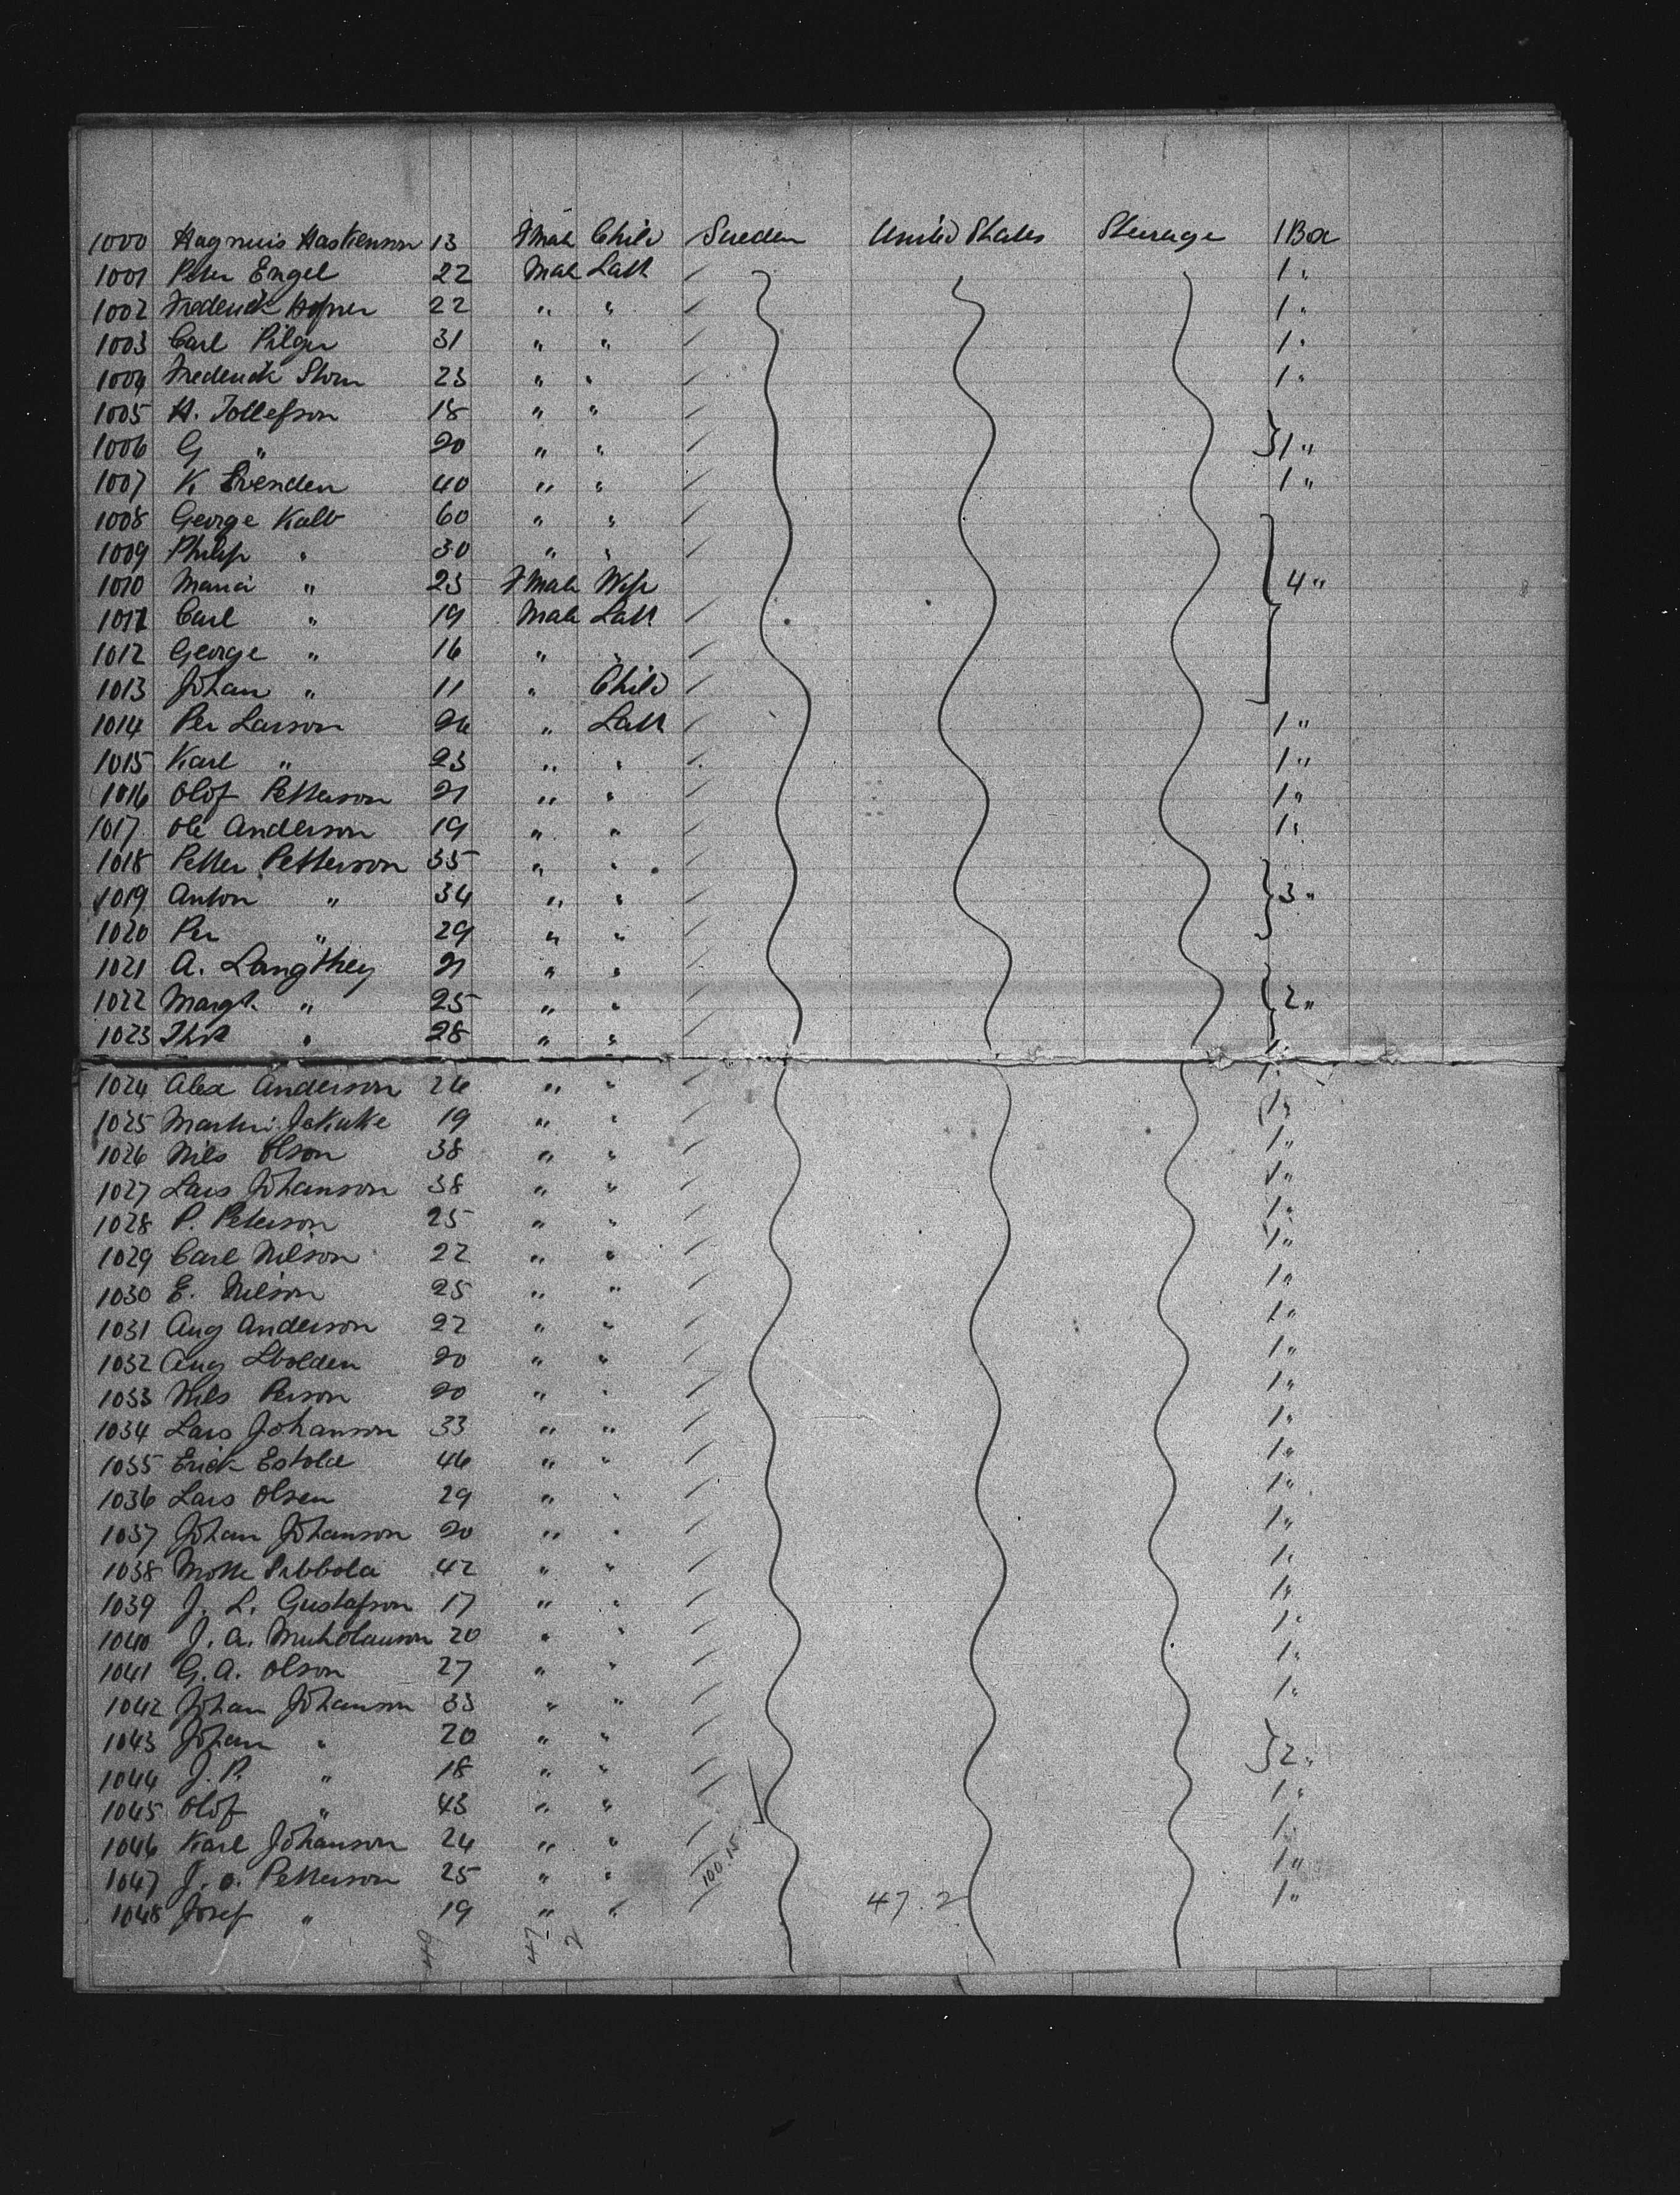 1000 Hagnuis Haskenson 13 Fmale Child Sweden United States Steerage 1 Box
1001 Peter Engel 22 Male Labr 1 "
1002 Frederick Hofner 22 " " 1 "
1003 Carl Pilger 31 " " 1 "
1004 Frederick Storm 23 " " 1 "
1005 H. Tollefson 18 " "
1006 G " 20 " " } 1 "
1007 K. Svenden 40 " " 1 "
1008 George Kalb 60 " "
1009 Philip " 30 " "
1010 Maria " 23 Fmale Wife { 4 "
1011 Carl " 19 Male Labr
1012 George " 16 " "
1013 Johan " 11 " Child
1014 Per Larson 26 " Labr 1 "
1015 Karl " 23 " " 1 "
1016 Olof Petterson 21 " " 1 "
1017 Ole Anderson 19 " " 1 "
1018 Petter Petterson 35 " "
1019 Anton " 34 " " } 3 "
1020 Per " 29 " "
1021 A. Langthey 21 " "
1022 Margt. " 25 " " { 2 "
1023 " 28 " " 1 "
1024 Alex Anderson 26 " " 1 "
1025 Martin 19 " " 1 "
1026 Nils Olson 38 " " 1 "
1027 Lars Johanson 38 " " 1 "
1028 P. Peterson 25 " " 1 "
1029 Carl Nilson 22 " " 1 "
1030 E. Nilson 25 " " 1 "
1031 Aug Anderson 22 " " 1 "
1032 Aug 20 " " 1 "
1033 Nils Person 20 " " 1 "
1034 Lars Johanson 33 " " 1 "
1035 Erick Estola 46 " " 1 "
1036 Lars Olsen 29 " " 1 "
1037 Johan Johanson 20 " " 1 "
1038 42 " " 1 "
1039 J. L. Gustafson 17 " " 1 "
1040 J. A. 20 " " 1 "
1041 G. A. Olson 27 " " 1 "
1042 Johan Johanson 33 " " 1 "
1043 Johan " 20 " "
1044 J. P. " 18 " " } 2 "
1045 Olof " 43 " " 1 "
1046 Karl Johanson 24 " " 1 "
1047 J. O. Petterson 25 " " 100.15 1 "
1048 Josef " 19 " " 47.2 1 "
47
2